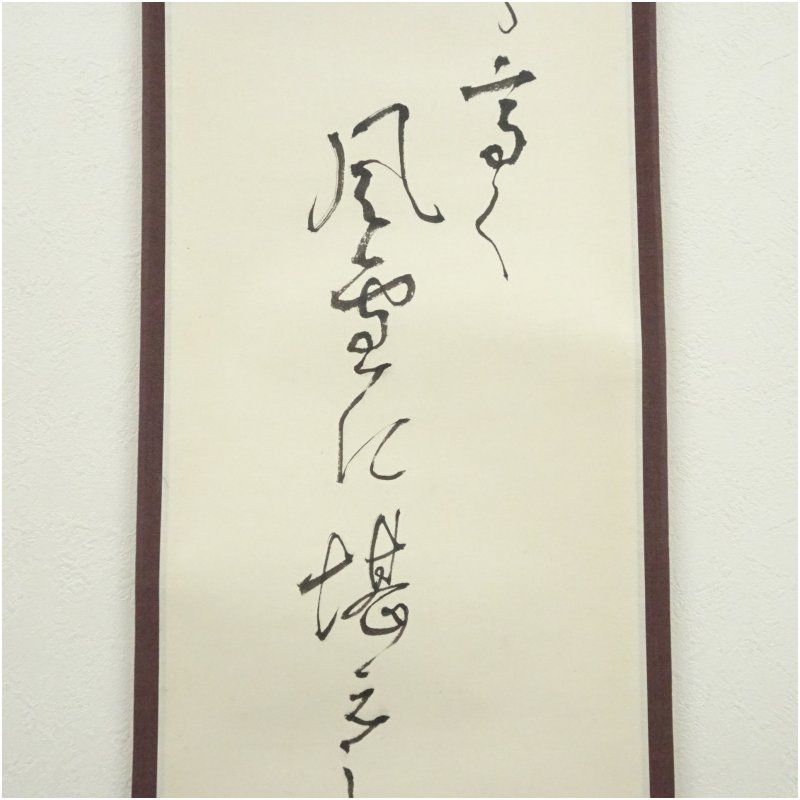 高く
風雪に堪え